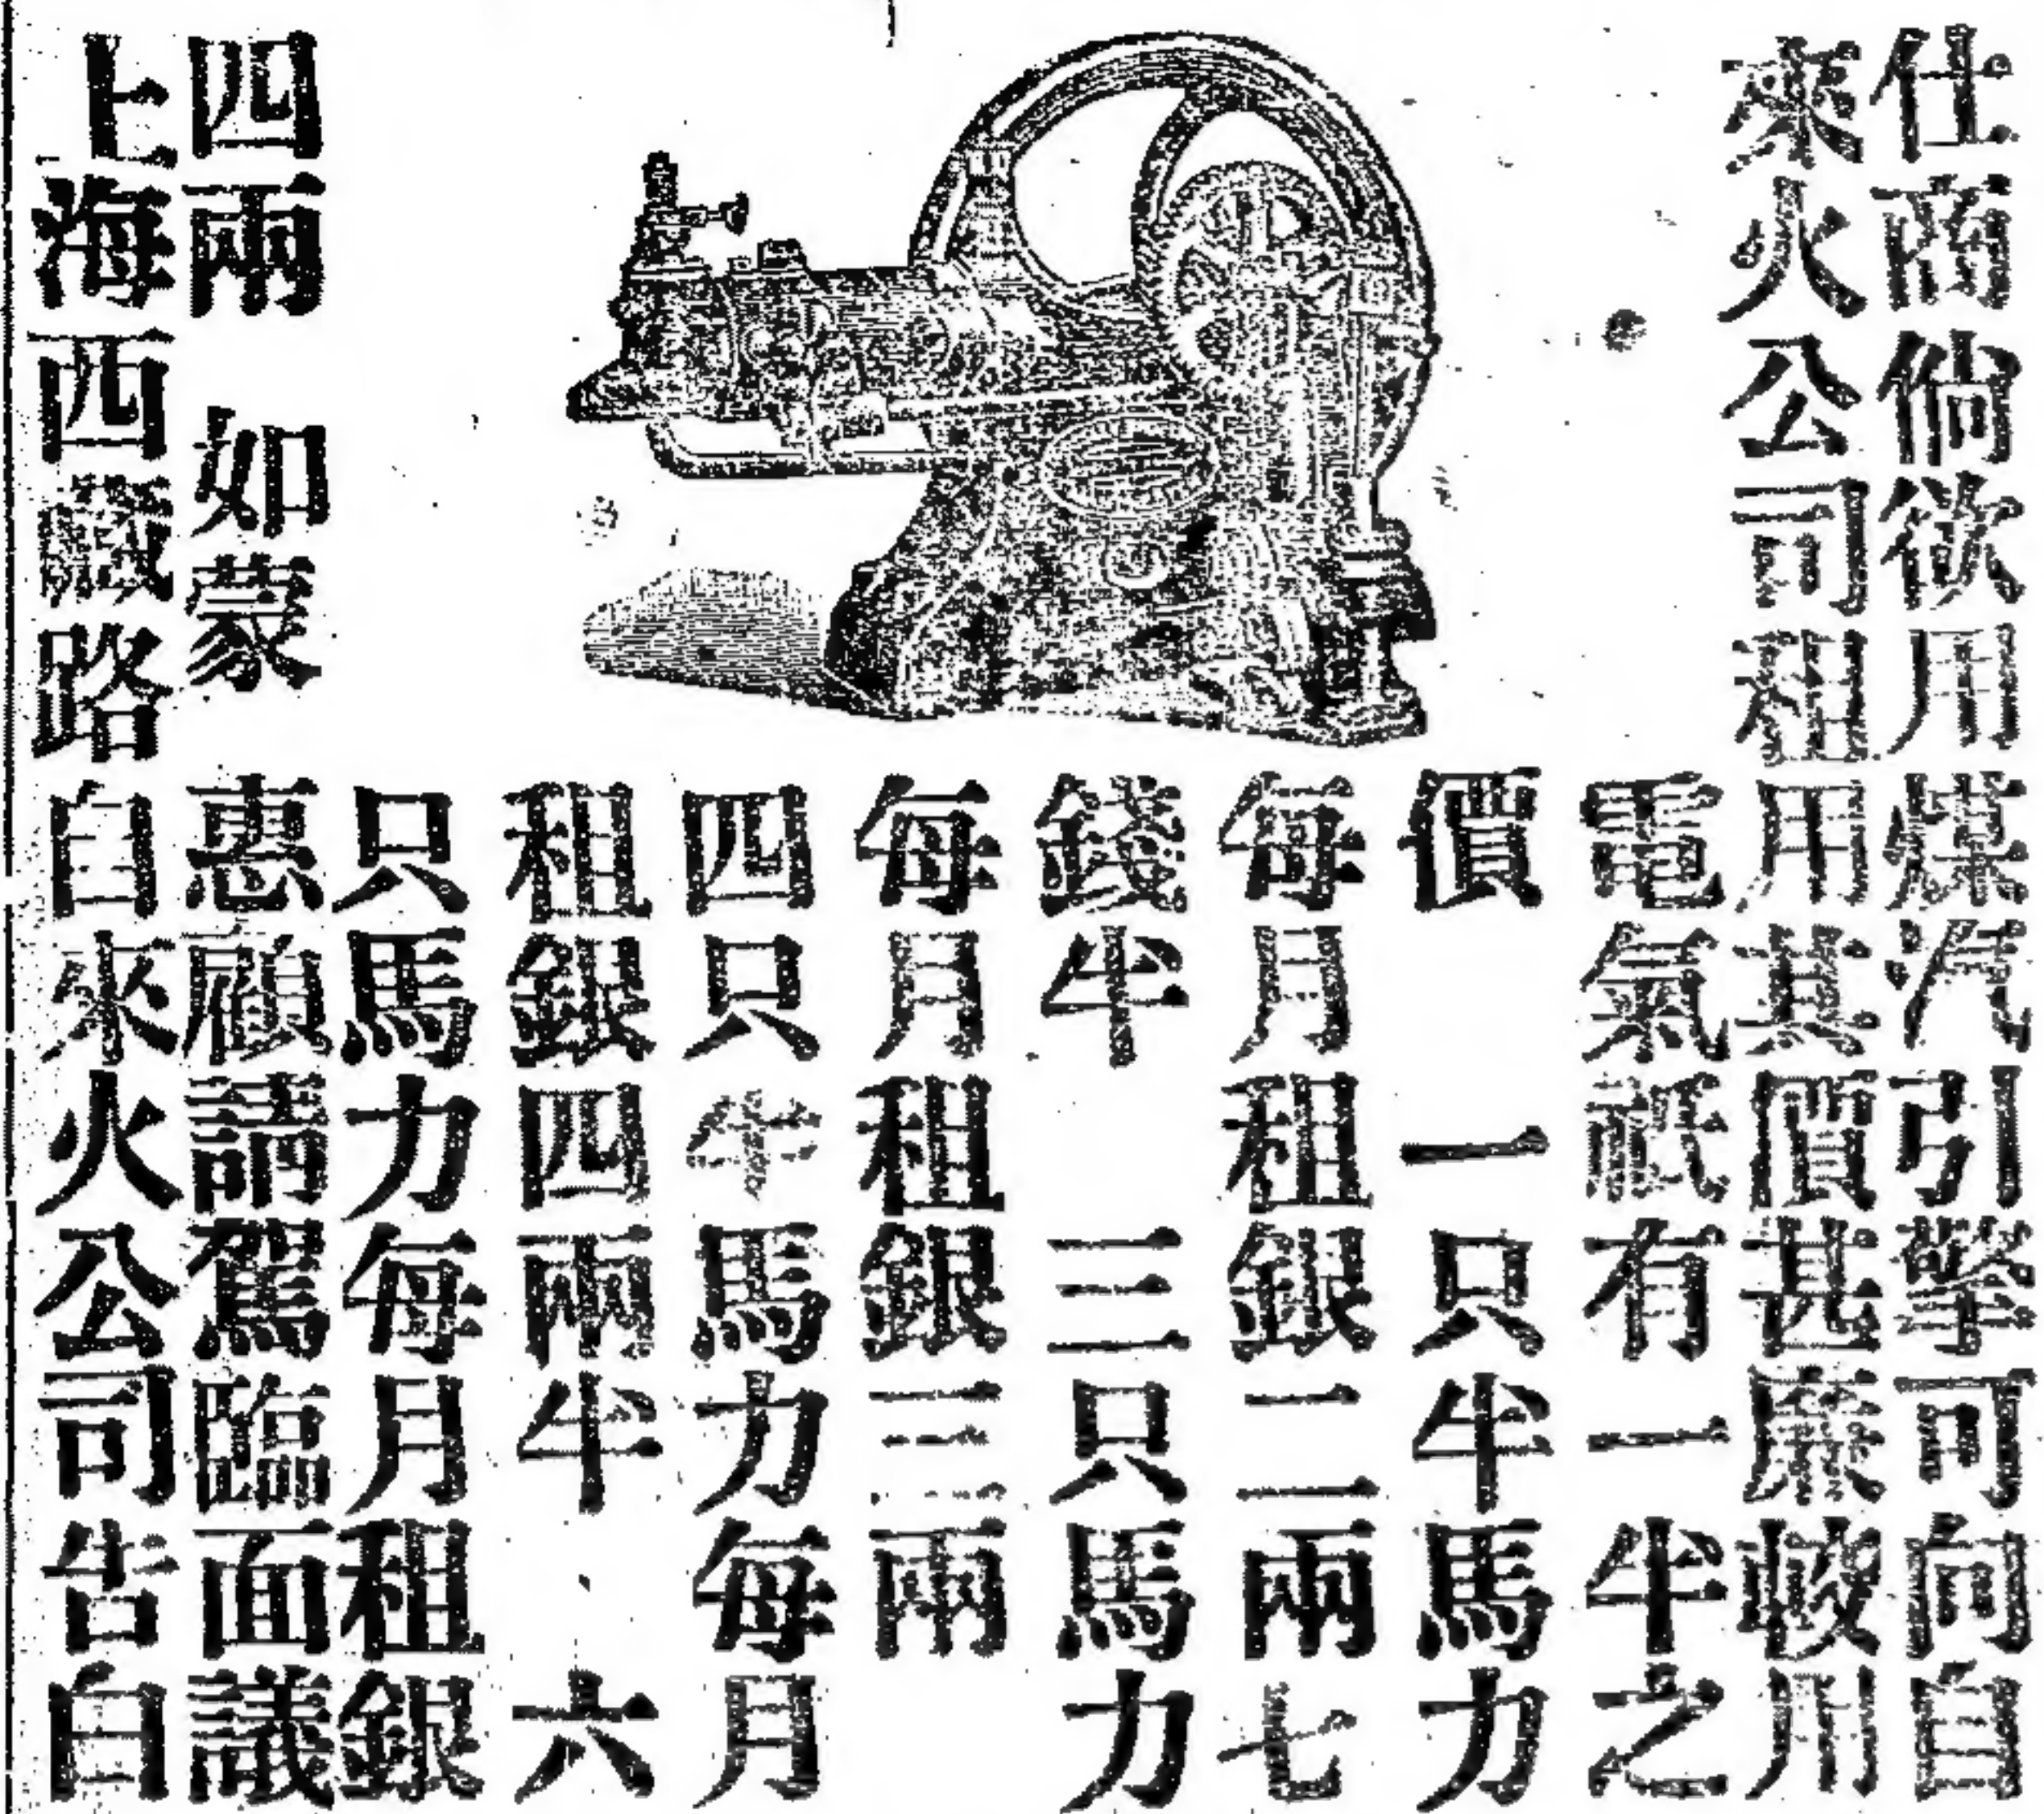 仕商倘欲用煤汽引擎可向自
來火公司租用其價甚廉較用
電氣祇有一半之
價　一只半馬力
每月租銀二兩七
錢半　三只馬力
每月租銀三兩
四只半馬力每月
租銀四兩半　六
只馬力每月租銀
四兩　如蒙惠顧請駕臨面議
上海西藏路自來火公司告白